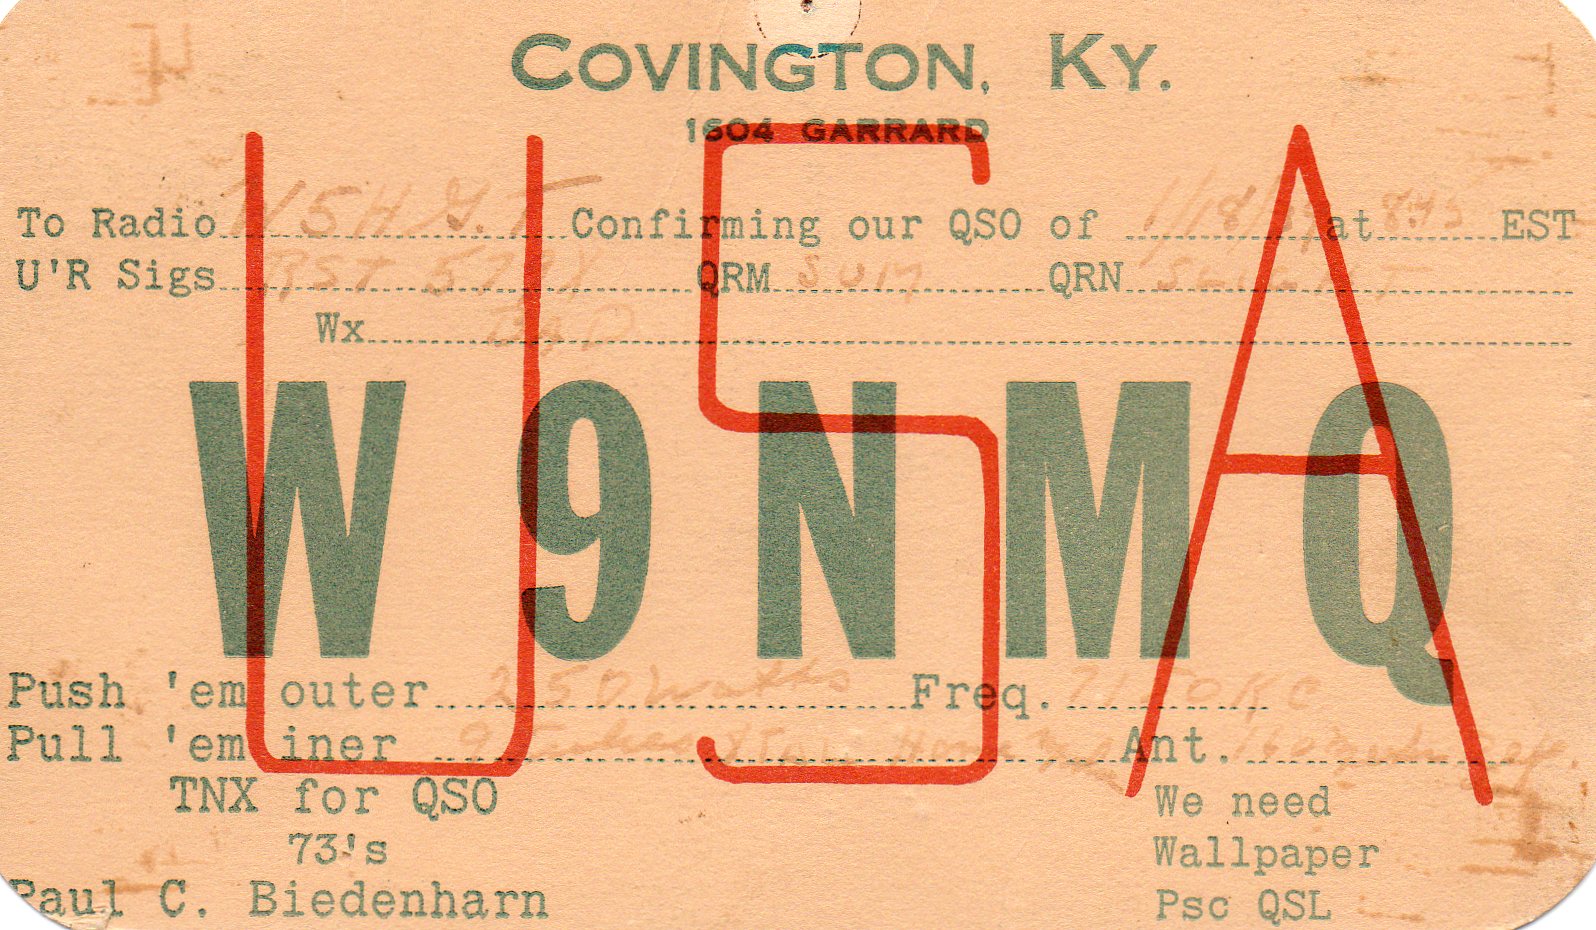 COVINGTON, KY.
1604 GARRARD
USA
To Radio W5HGT Confirming our QSO of 1/18/39 at 8:45 EST
U'R Sigs RST 579X QRM SUM QRN SLIGHT
Wx BAD
W9NMQ
Push 'em outer 250 watts Freq. 7150 KC
Pull 'em iner 9 Tubes Ant.
TNX for QSO
73's
Paul C. Biedenharn
We need
Wallpaper
Psc QSL